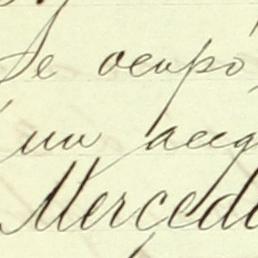 Se ocupó
un aceg
Mercedo